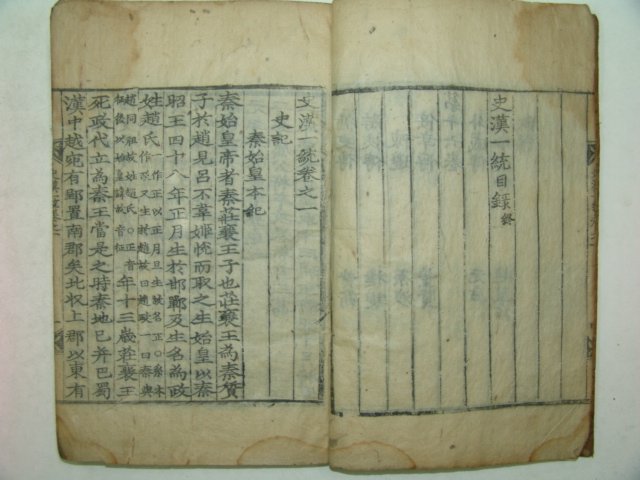 史漢一統目録 終
史漢一統卷之一
史記
秦始皇本紀
秦始皇帝者秦莊襄王子也莊襄王為秦質
子於趙見呂不韋姬悅而取之生始皇以秦
昭王四十八年正月生於邯鄲及生名為政
姓趙氏
年十三歲莊襄王
死政代立為秦王當是之時秦地已并巴蜀
漢中越宛有郢置南郡矣北收上郡以東有